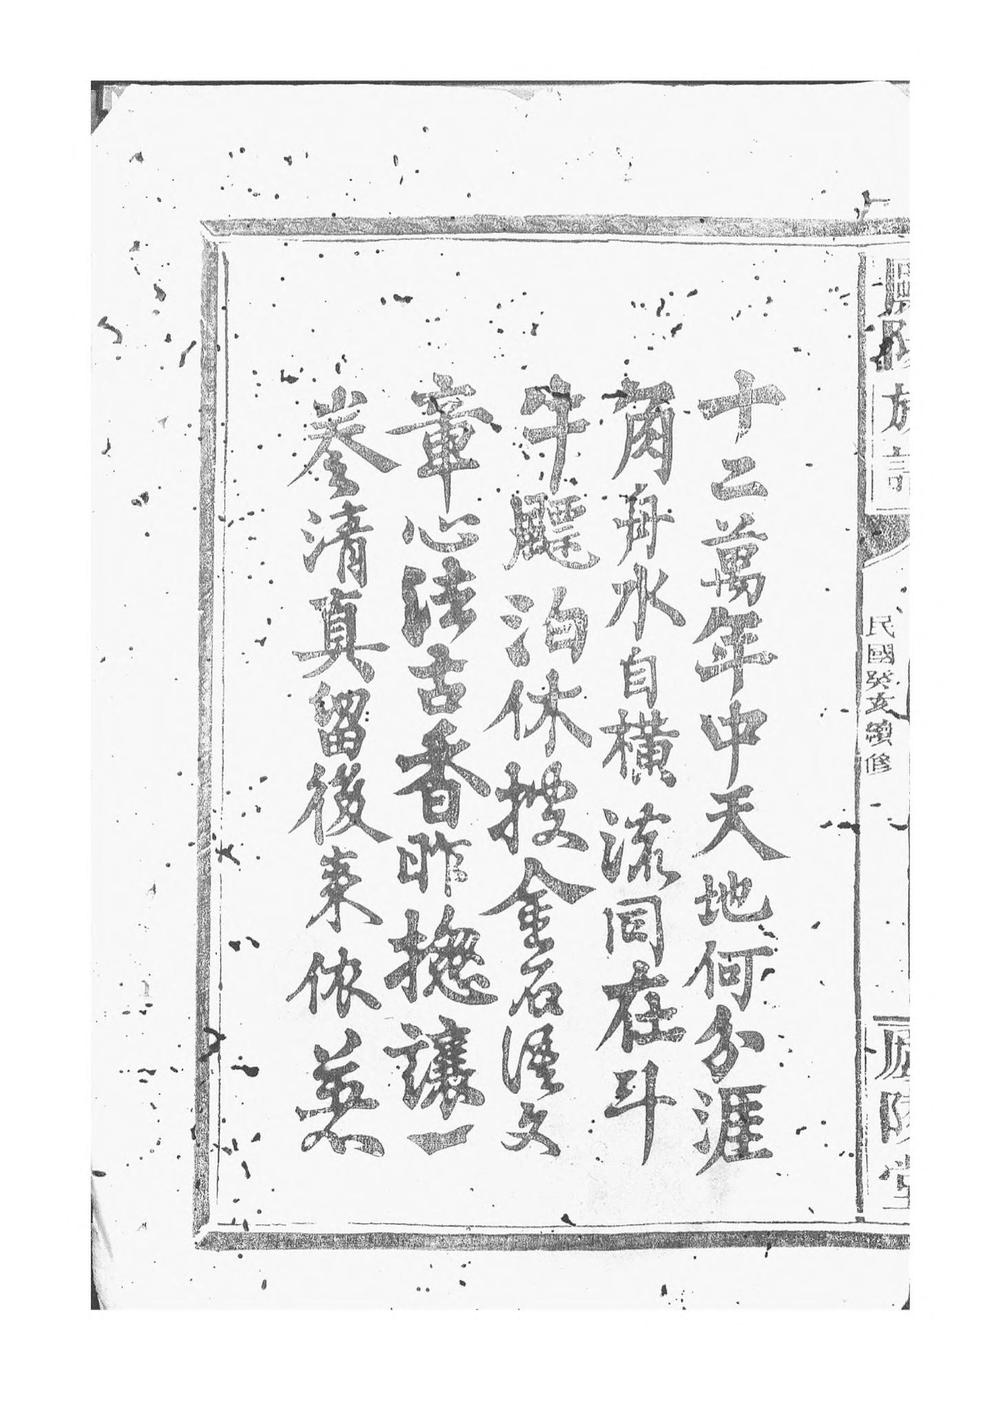 十二萬年中天地何分涯
角舟水自橫流同在斗
牛飃泊休搜金石濅文
章心法古香昨撫讓一
拳清真留後來依慕
族譜
民國癸亥續修
廬陵堂